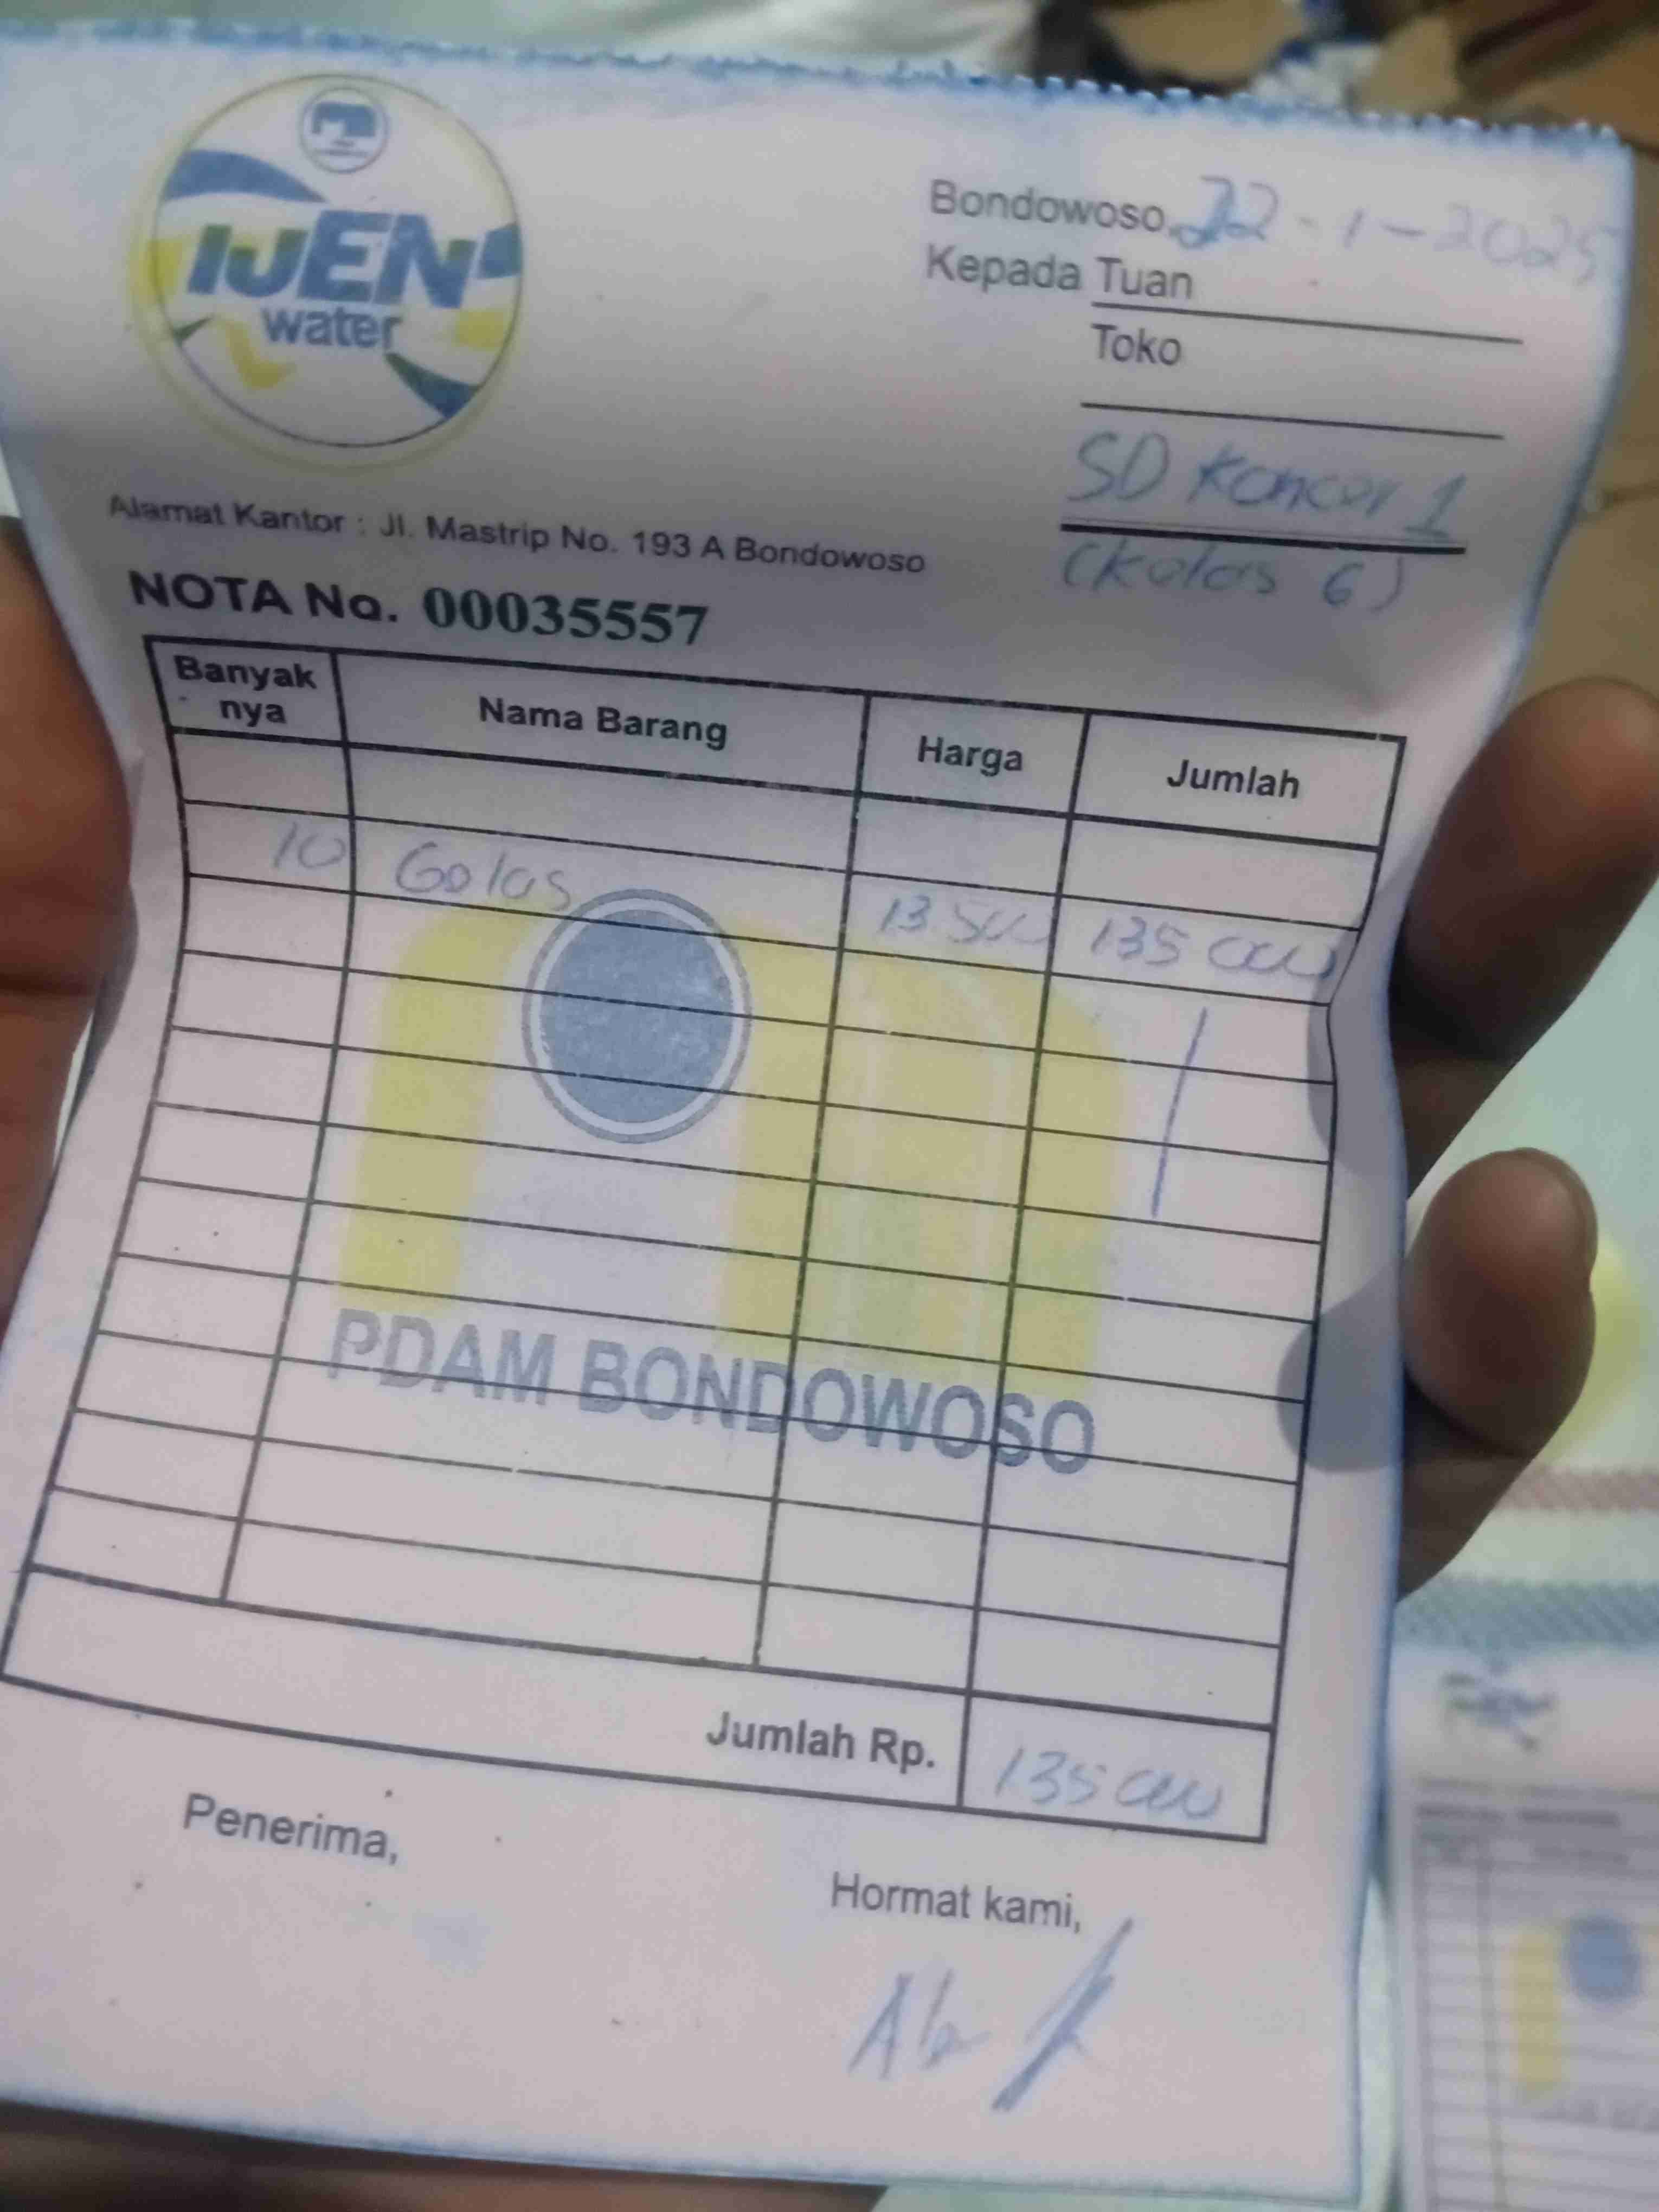 IJEN
water
Bondowoso, 22-1-2025
Kepada Tuan
Toko
SD Koncer 1
(kelas 6)
Alamat Kantor : Jl. Mastrip No. 193 A Bondowoso
NOTA No. 00035557
Banyak nya Nama Barang Harga Jumlah
10 Gelas 13 500 135 000
PDAM BONDOWOSO
Jumlah Rp. 135 000
Penerima,
Hormat kami,